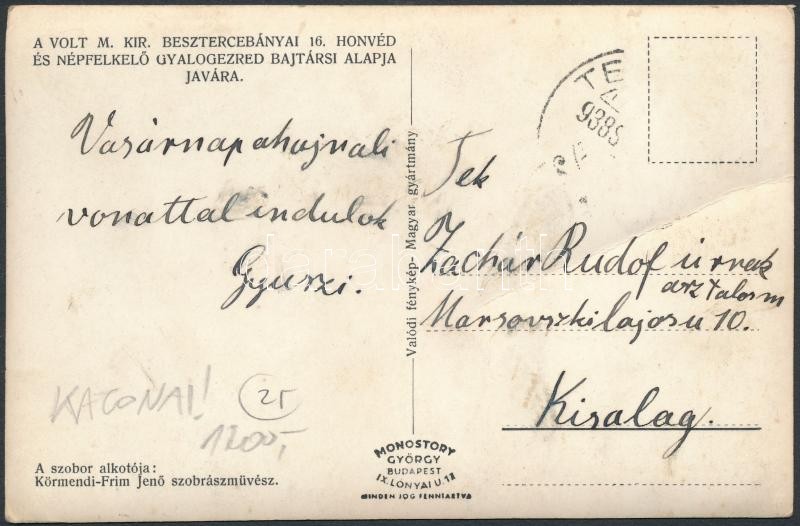 A VOLT M. KIR. BESZTERCEBÁNYAI 16. HONVÉD
ÉS NÉPFELKELŐ GYALOGEZRED BAJTÁRSI ALAPJA
JAVÁRA.
Vasárnap a hajnali
vonattal indulok
Gyuszi.
KATONAI!
25
1200,-
A szobor alkotója:
Körmendi-Frim Jenő szobrászművész.
Valódi fénykép- Magyar gyártmány
MONOSTORY
GYÖRGY
BUDAPEST
IX. LÓNYAI U. 18
MINDEN JOG FENNTARTVA
TE
938S
Tek
Zachár Rudof úrnak
asztalosm
Marsovszki lajos u 10.
Kisalag.
darabanth